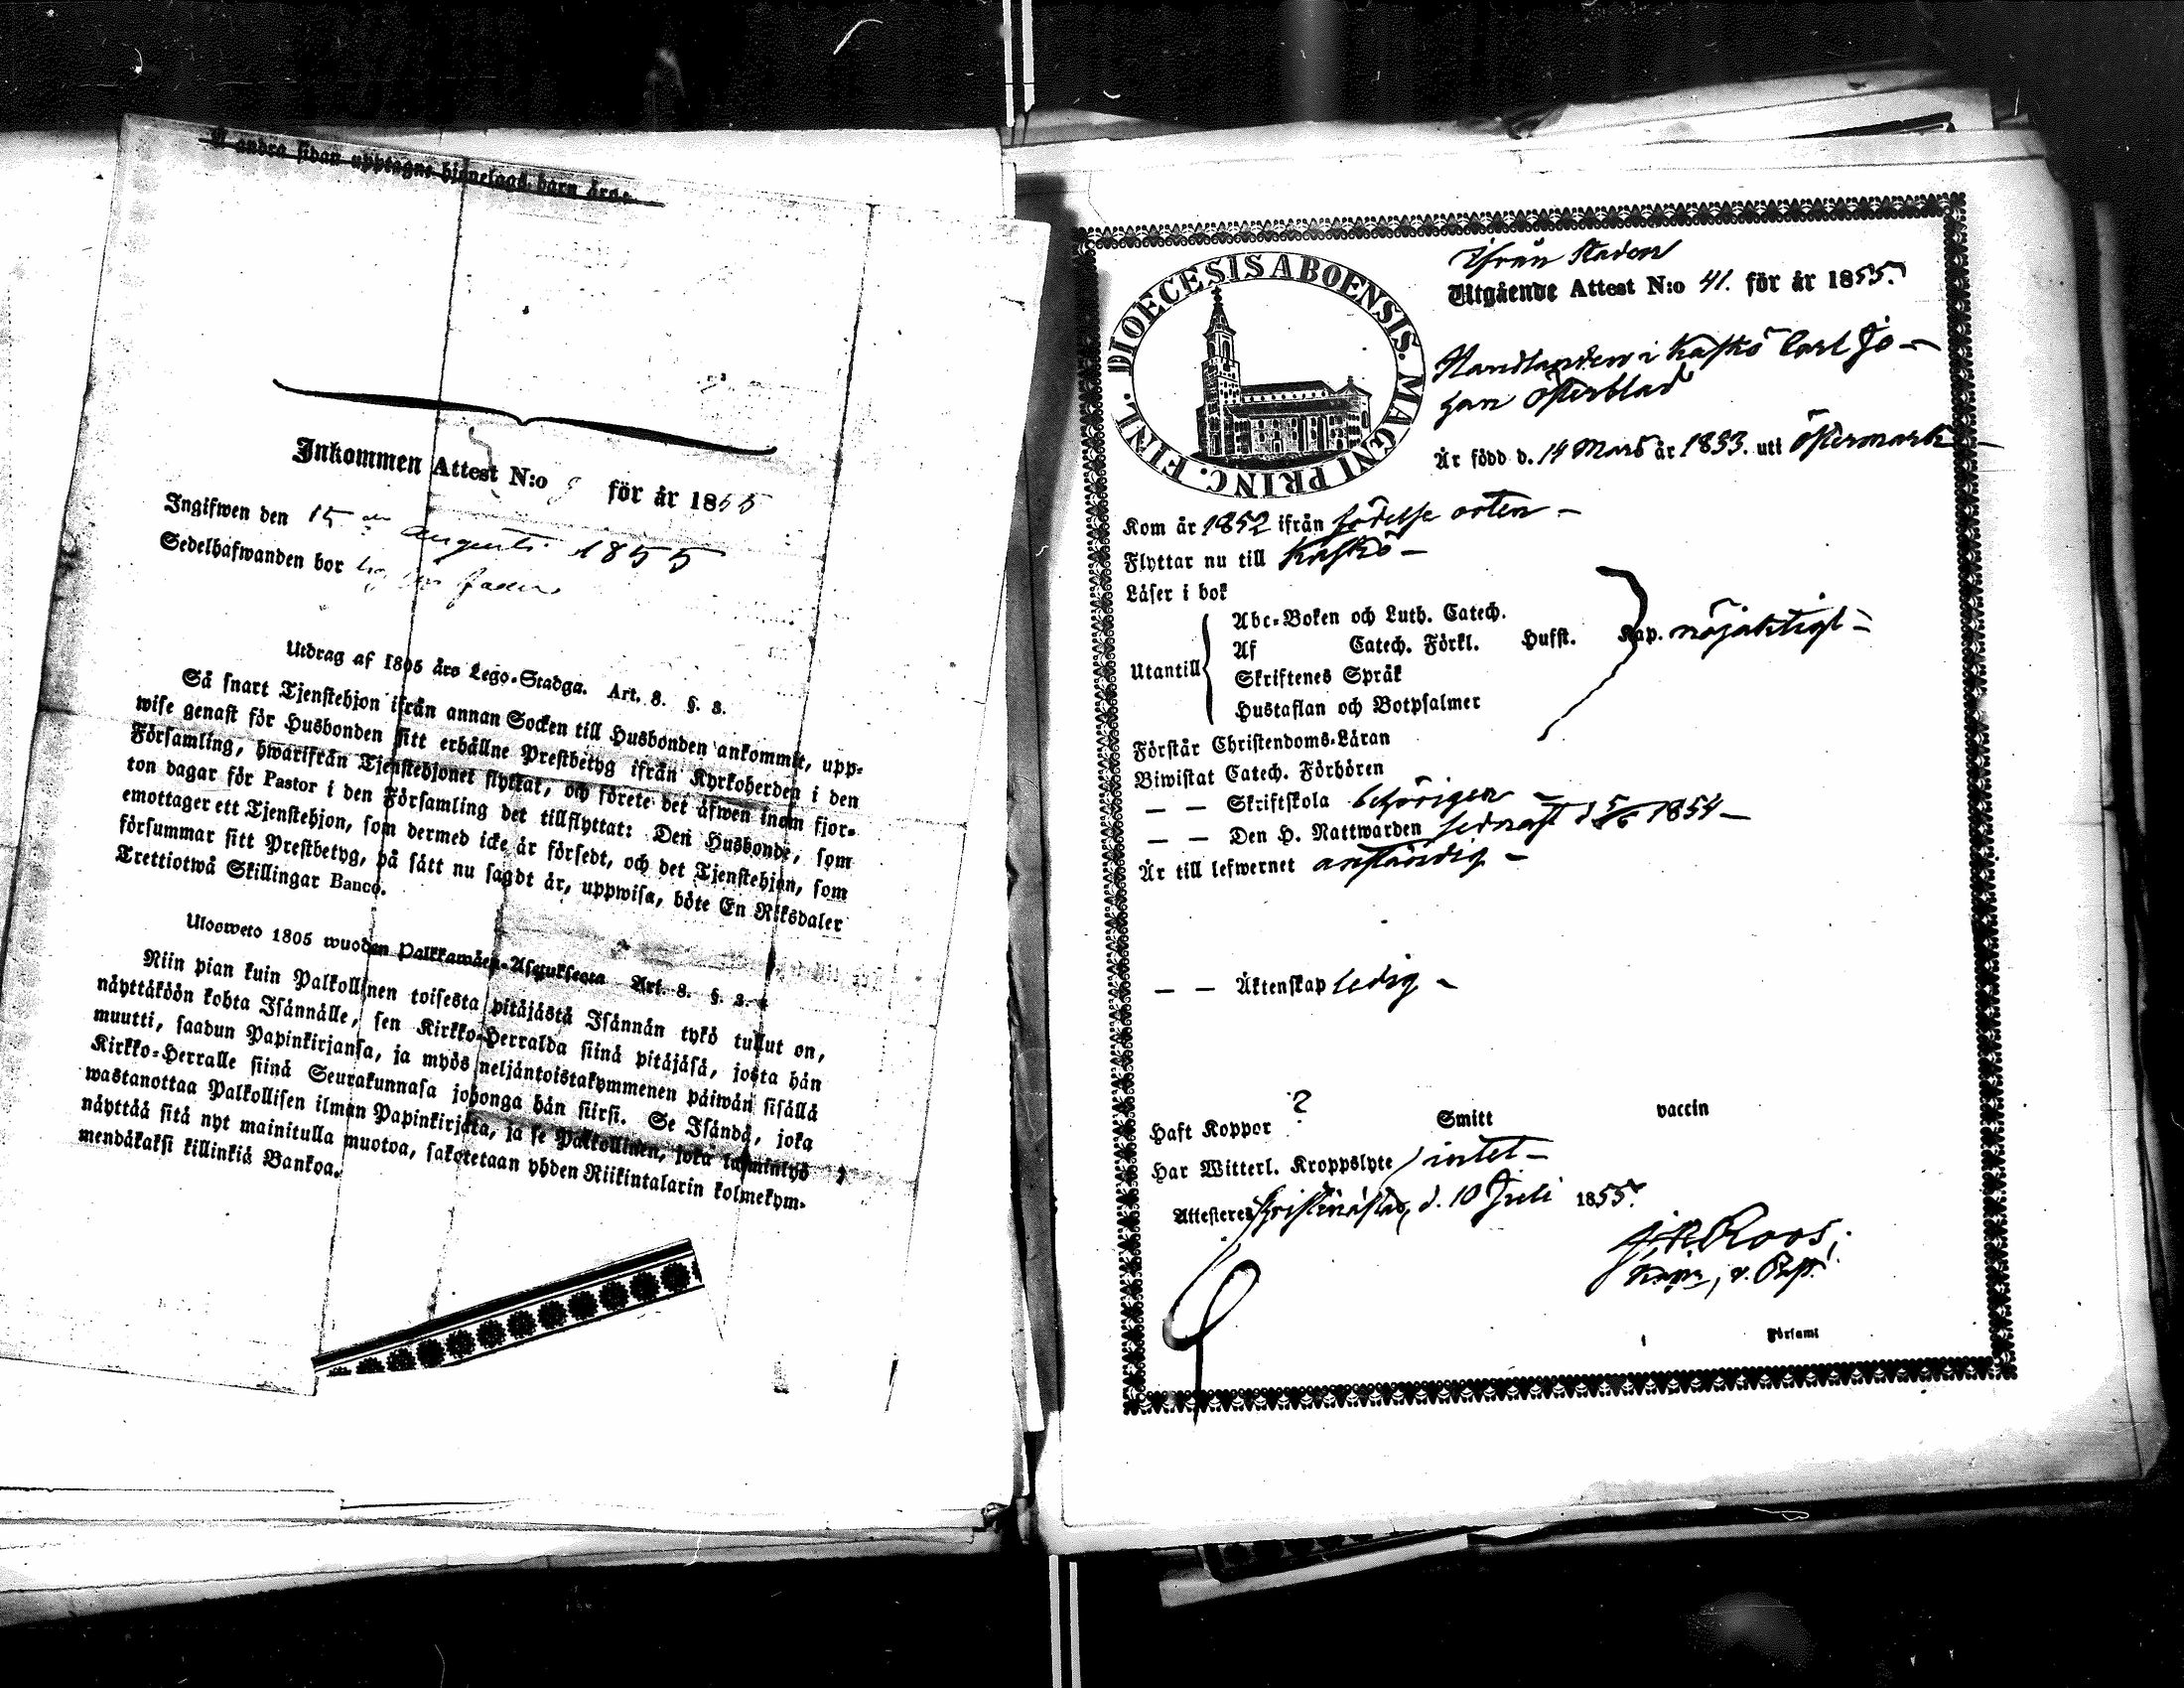 å andra sidan upptagne hjonelags barn äro:
Inkommen Attest N:o för år 1855
Ingifwen den 15 de Augusti 1855
Sedelhafwanden bor fader
Utdrag af 1805 års Lego-Stadga. Art. 8. §. 3.
Så snart Tjenstehjon ifrån annan Socken till Husbonden ankommit, upp-
wise genast för Husbonden sitt erhållne Prestbetyg ifrån Kyrkoherden i den
Församling, hwarifrån Tjenstehjonet flyttat, och förete det äfwen inom fjor-
ton dagar för Pastor i den Församling det tillflyttat: Den Husbonde, som
emottager ett Tjenstehjon, som dermed icke är försedt, och det Tjenstehjon, som
försummar sitt Prestbetyg, på sätt nu sagdt är, uppwisa, böte En Riksdaler
Trettiotwå Skillingar Banco.
Ulosweto 1805 wuoden Palkkawäen-Asetuksesta Art. 8. §. 3.
Niin pian kuin Palkollinen toisesta pitäjästä Isännän tykö tullut on,
näyttäköön kohta Isännälle, sen Kirkko-Herralda siinä pitäjäsä, josta hän
muutti, saadun Papinkirjansa, ja myös neljäntoistakymmenen päiwän sisällä
Kirkko-Herralle siinä Seurakunnasa johonga hän siirsi. Se Isändä, joka
wastanottaa Palkollisen ilman Papinkirjata, ja se Palkollinen, joka laiminlyö
näyttää sitä nyt mainitulla muotoa, sakotetaan yhden Riikintalarin kolmekym-
mendäkaksi killinkiä Bankoa.
DIOECESIS ABOENSIS. MAGNI PRINC. FINL.
Ifrån staden
Utgående Attest N:o 41. för år 1855.
Handlanden i Kaskö Carl Jo-
han Österblad
Är född d. 14 Mars år 1833. uti Östermark
Kom år 1852 ifrån födelse orten -
Flyttar nu till Kaskö -
Läser i bok
Abc-Boken och Luth. Catech.
Af Catech. Förkl. Husst. Kap. nöjaktigt -
Utantill
Skriftenes Språk
Hustaflan och Botpsalmer
Förstår Christendoms-Läran
Biwistat Catech. Förhören
— — Skriftskola behörigen -
— — Den H. Nattwarden sednast d 5/6 1854 -
Är till lefwernet anständig -
— — Äktenskap ledig -
Haft Koppor ? Smitt vaccin
Har Witterl. Kroppslyte intet -
Attesteres Kristinestad, d. 10 Juli 1855.
Roos,
Församl